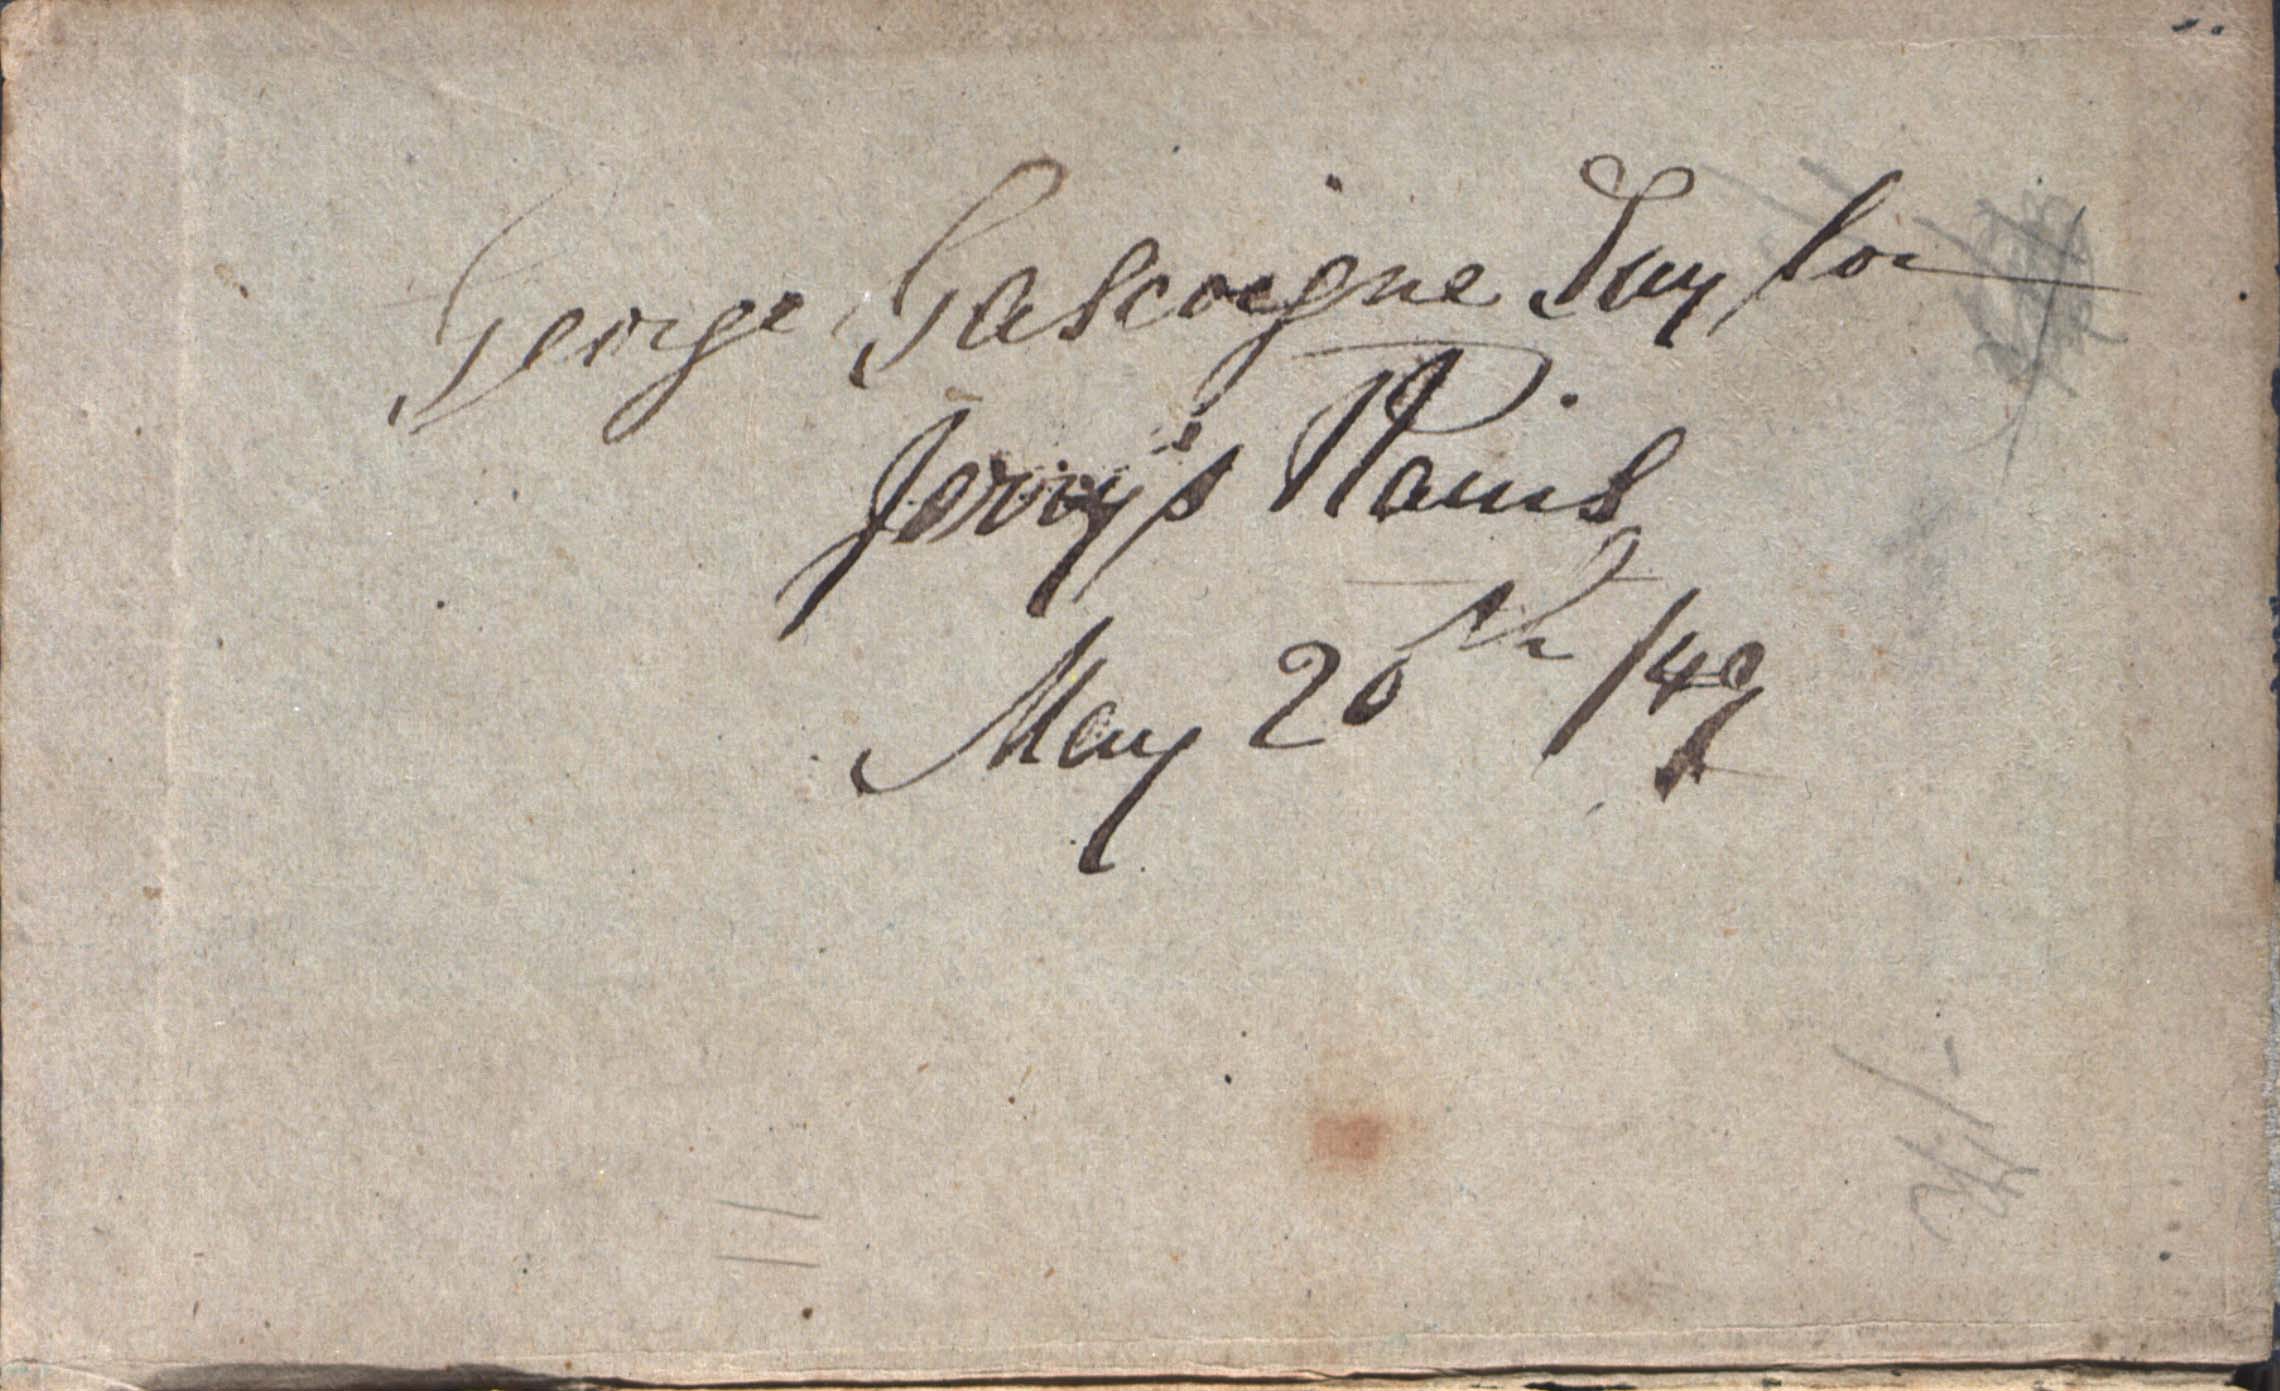 George Gascoigne Taylor
Jerry's Plains
May 20th /49